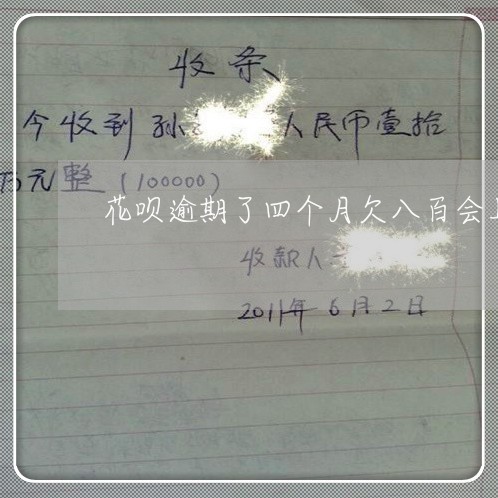 收条
今收到孙 人民币壹拾
万元整(100000)
花呗逾期了四个月欠八百会
收款人
2011年6月2日